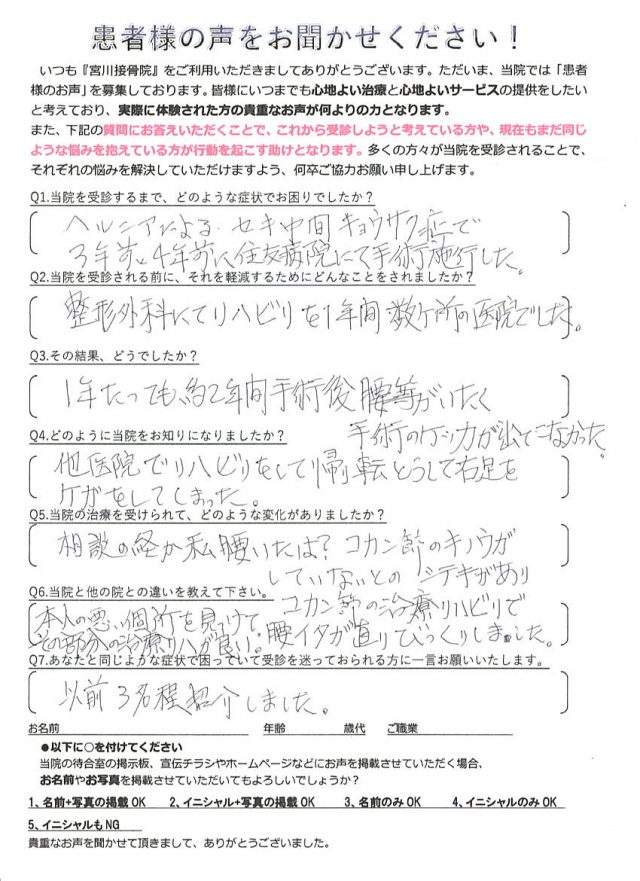 患者様の声をお聞かせください！
いつも『宮川接骨院』をご利用いただきましてありがとうございます。ただいま、当院では「患者
様のお声」を募集しております。皆様にいつまでも心地よい治療と心地よいサービスの提供をしたい
と考えており、実際に体験された方の貴重なお声が何よりの力となります。
また、下記の質問にお答えいただくことで、これから受診しようと考えている方や、現在もまだ同じ
ような悩みを抱えている方が行動を起こす助けとなります。多くの方々が当院を受診されることで、
それぞれの悩みを解決していただけますよう、何卒ご協力お願い申し上げます。
Q1.当院を受診するまで、どのような症状でお困りでしたか？
ヘルニアによる セキ中間 キョウサク症で
3年前と4年前に住友病院にて手術施行した。
Q2.当院を受診される前に、それを軽減するためにどんなことをされましたか？
整形外科にてリハビリを1年間 数ケ所の医院でした。
Q3.その結果、どうでしたか？
1年たっても、約2年間手術後 腰等がいたく
手術のケッカが出てこなかった。
Q4.どのように当院をお知りになりましたか？
他医院でリハビリをして帰り転とうして右足を
ケガをしてしまった。
Q5.当院の治療を受けられて、どのような変化がありましたか？
相談の経か私腰いたは？ コカン節のキノウが
していないとの シテキがあり
コカン節の治療リハビリで
腰イタが直りびっくりしました。
Q6.当院と他の院との違いを教えて下さい。
本人の悪い個所を見つけて
その部分への治療リハが良い。
Q7.あなたと同じような症状で困っていて受診を迷っておられる方に一言お願いいたします。
以前3名程紹介しました。
お名前 年齢 歳代 ご職業
●以下に○を付けてください
当院の待合室の掲示板、宣伝チラシやホームページなどにお声を掲載させていただく場合、
お名前やお写真を掲載させていただいてもよろしいでしょうか？
1、名前+写真の掲載 OK 2、イニシャル+写真の掲載 OK 3、名前のみ OK 4、イニシャルのみ OK
5、イニシャルも NG
貴重なお声を聞かせて頂きまして、ありがとうございました。